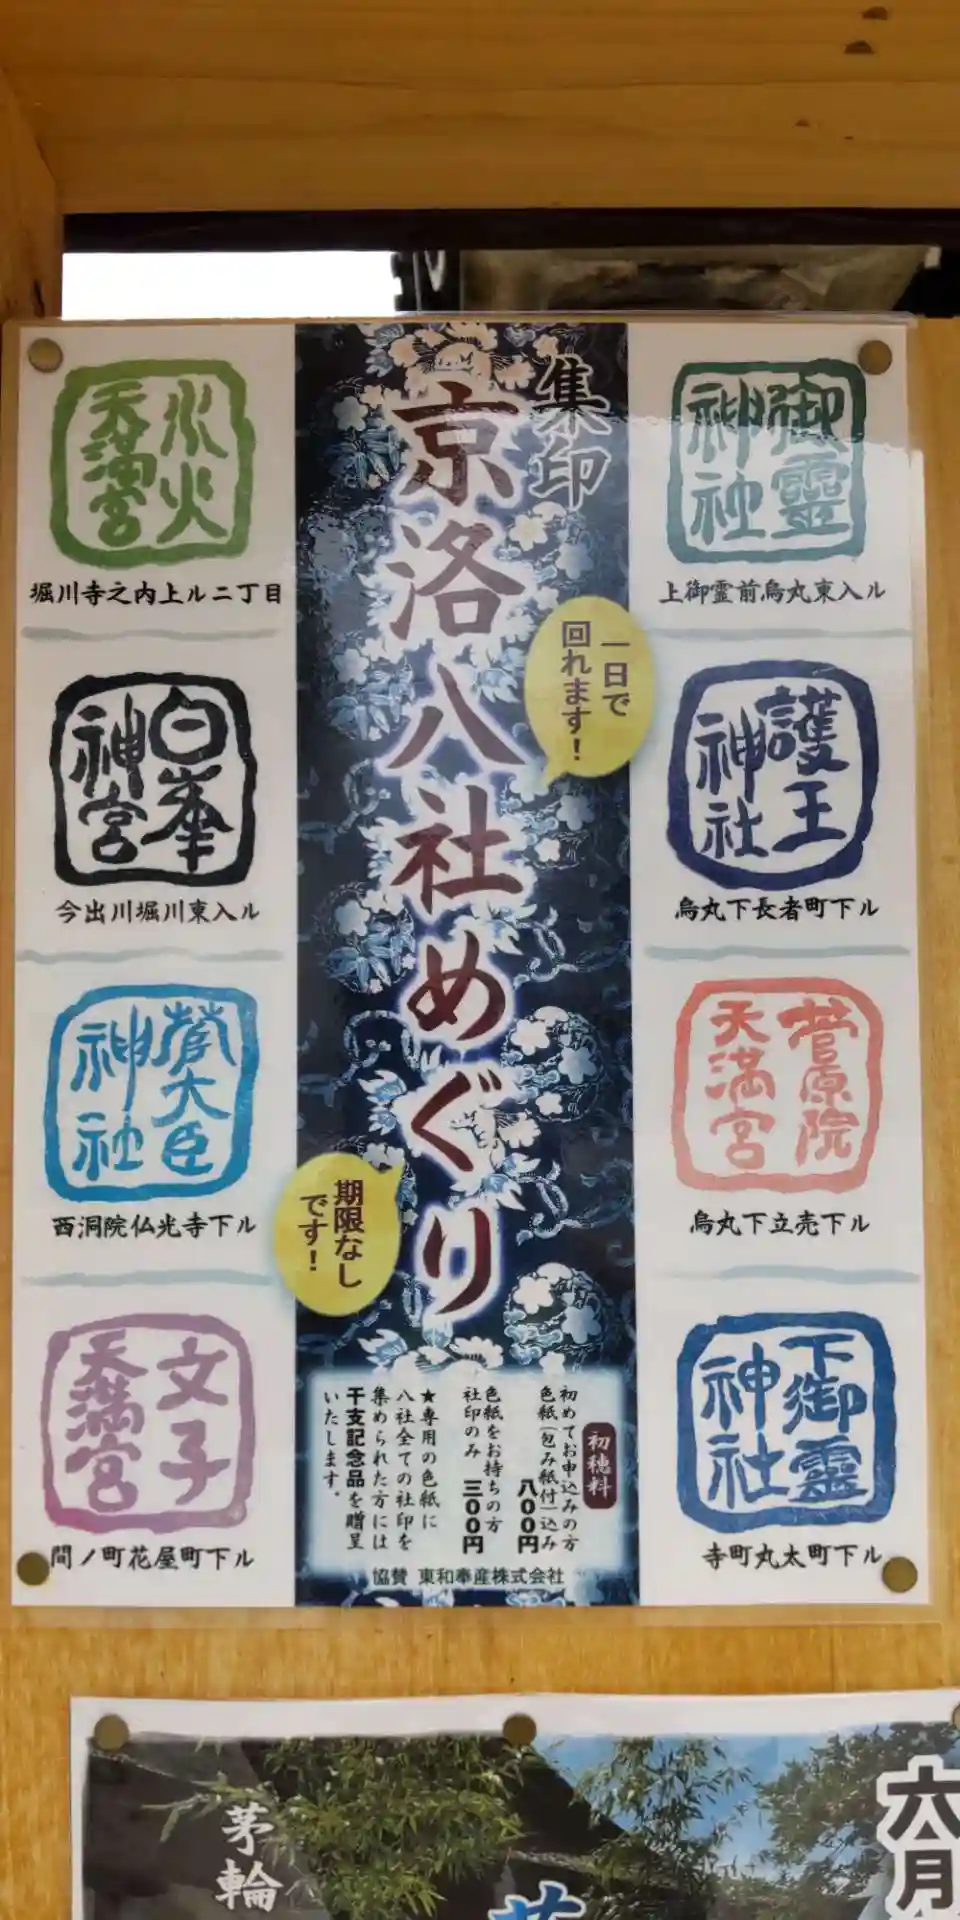 集印
京洛八社めぐり
一日で
回れます！
期限なし
です！
御靈
神社
上御霊前烏丸東入ル
護王
神社
烏丸下長者町下ル
菅原院
天満宮
烏丸下立売下ル
下御靈
神社
寺町丸太町下ル
水火
天満宮
堀川寺之内上ル二丁目
白峯
神宮
今出川堀川東入ル
菅大臣
神社
西洞院仏光寺下ル
文子
天満宮
間ノ町花屋町下ル
初穂料
初めてお申込みの方
色紙（包み紙付）込み
八００円
色紙をお持ちの方
社印のみ 三００円
★専用の色紙に
八社全ての社印を
集められた方には
干支記念品を贈呈
いたします。
協賛 東和奉産株式会社
六月
茅輪